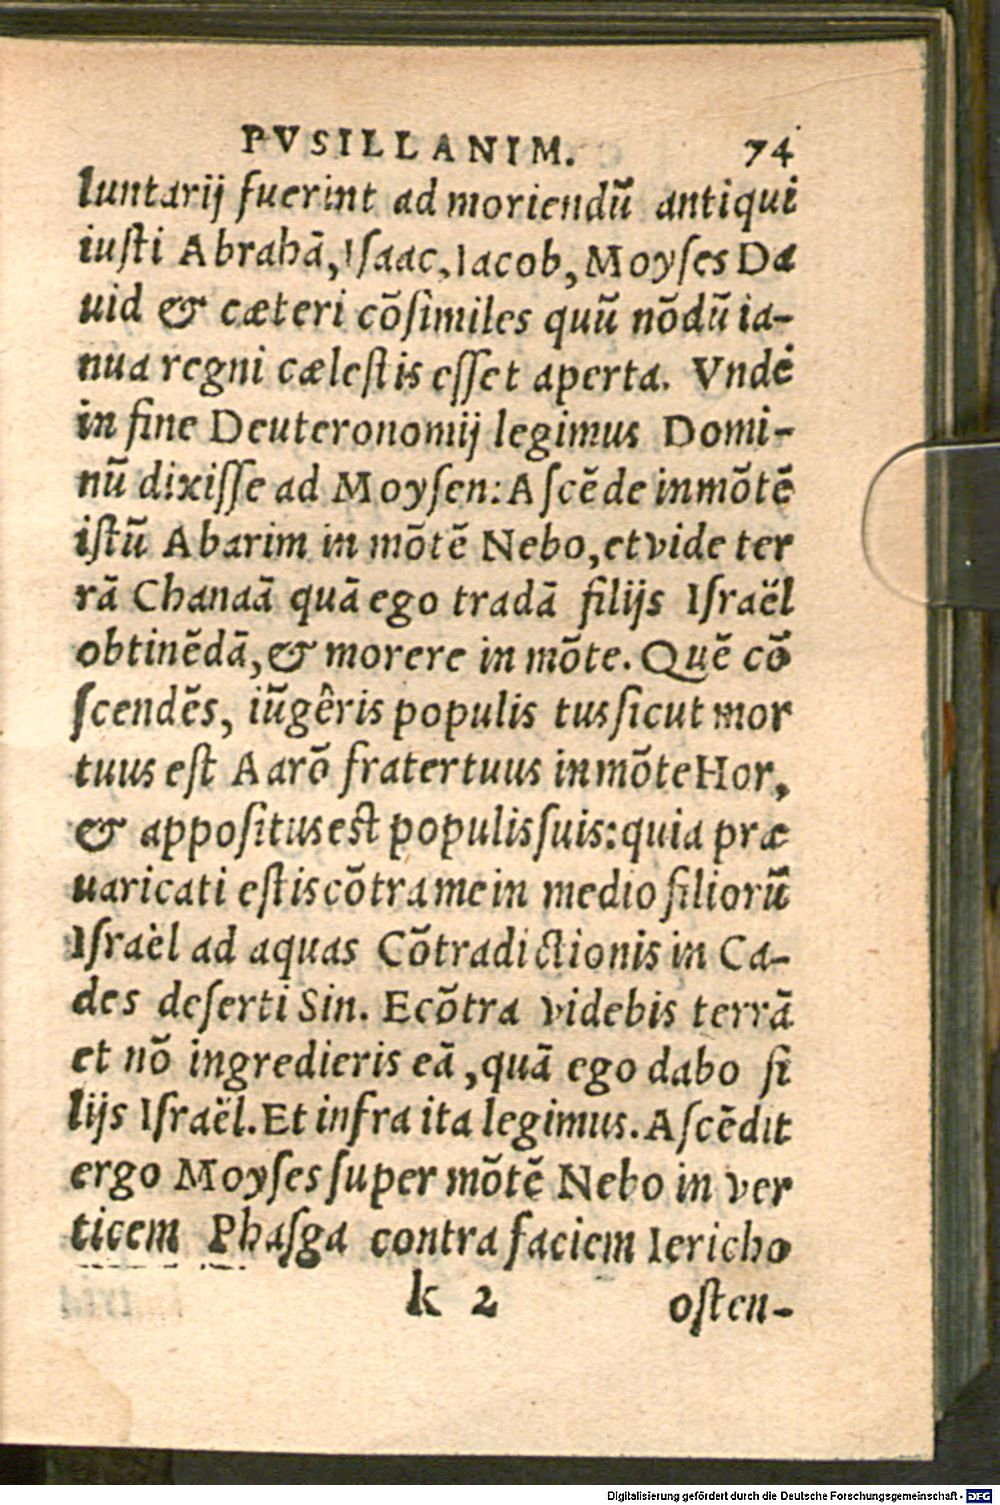 PVSILLANIM. 74
luntarij fuerint ad moriendū antiqui
iuſti Abrahā, Iſaac, Iacob, Moyſes Da
uid & cæteri cōſimiles quū nōdū ia-
nua regni cæleſtis eſſet aperta. Vnde
in fine Deuteronomij legimus Domi-
nū dixiſſe ad Moyſen: Aſcēde in mōtē
iſtū Abarim in mōtē Nebo, et vide ter
rā Chanaā quā ego tradā filijs Iſraël
obtinēdā, & morere in mōte. Quē cō
ſcendēs, iūgêris populis tus ſicut mor
tuus eſt Aarō frater tuus in mōte Hor,
& appoſitus eſt populis ſuis: quia præ
uaricati eſtis cōtra me in medio filiorū
Iſraèl ad aquas Cōtradictionis in Ca-
des deſerti Sin. Ecōtra videbis terrā
et nō ingredieris eā, quā ego dabo fi
lijs Iſraël. Et infra ita legimus. Aſcēdit
ergo Moyſes ſuper mōtē Nebo in ver
ticem Phaſga contra faciem Iericho
k 2 oſten-
Digitalisierung gefördert durch die Deutsche Forschungsgemeinschaft - DFG